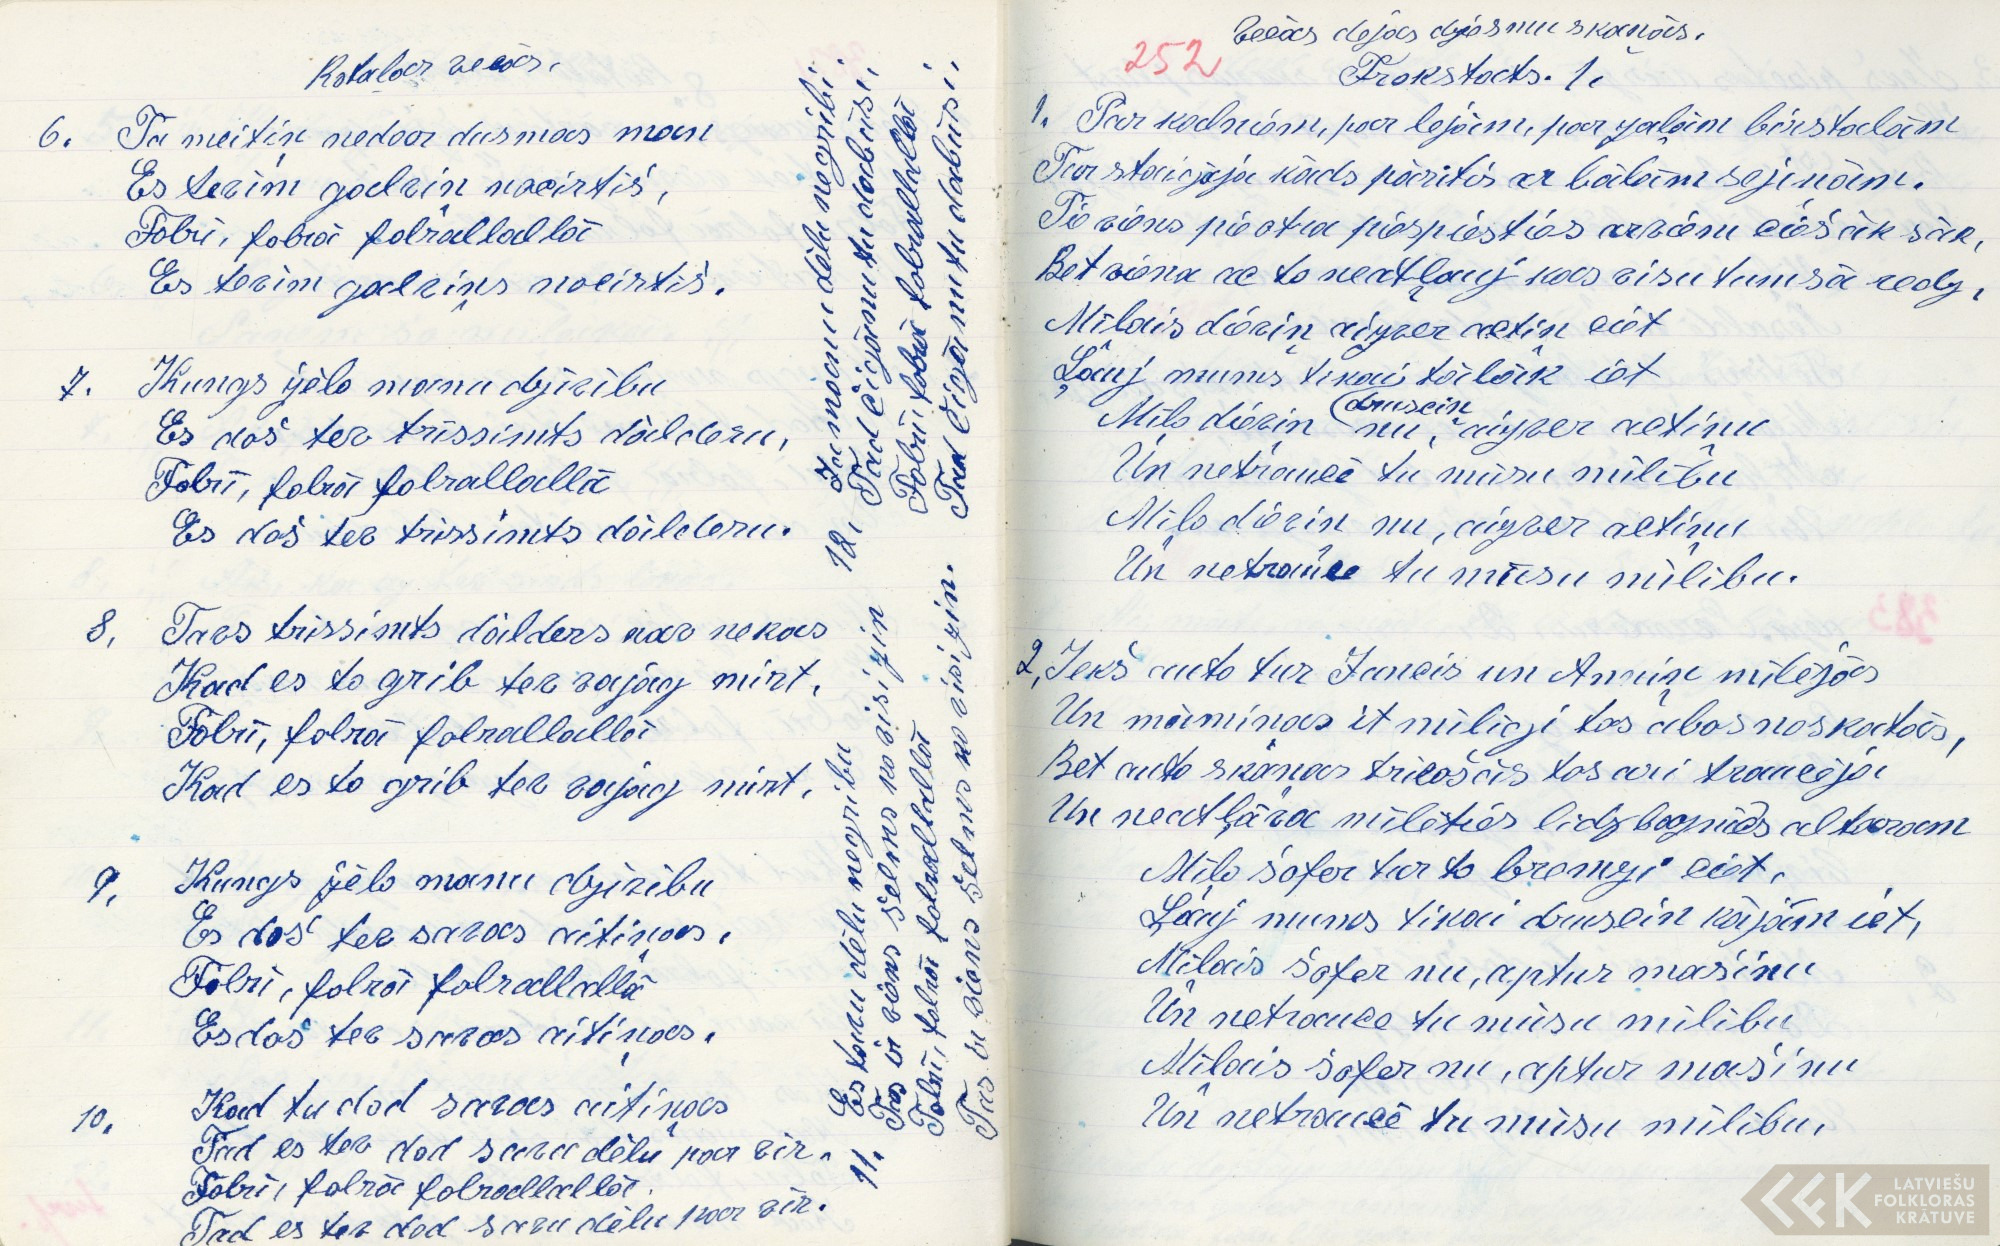 Rotaļas vecās.
6. Tu meitiņ nedar dusmas man
Es tevim galviņ nocirtīš,
Fobrī, fobrā fobrallallā
Es tevim galviņs nocirtīš.
7. Kungs jēlo manu dzīvību
Es došu tev trīssimts dālderu,
Fobrī, fobrā fobrallallā
Es doš tev trissimts dālderu.
8. Tavs trissimts dālders nav nekas
Kad es to grib tev vajag mirt,
Fobrī, fobrā fobrallallā
Kad es to grib tev vajag mirt.
9. Kungs jēlo manu dzīvību
Es doš tev savas aitiņas.
Fobrī, fobrā fobrallallā
Es doš tev savas aitiņas.
10. Kad tu dod savas aitiņas
Tad es tev dod savu dēlu par vīr.
Fobrī, fobrā fobrallallā.
Tad es tev dod savu dēlu par vīr.
11. Es tavu dēlu negribu
Tas ir viens šelms no visi ziņ
Fobrī, fobrā fobrallallā
Tas ir viens šelms no visi ziņ.
12. Ja manu dēlu negribi
Tad čigānu tu dabūsi,
Fobrī, fobrā fobrallallā
Tad čigānu tu dabūsi.
252
Vecās dejās dziesmu skanās.
Frokstrots. 1.
1. Par kalniem, par lejām, par zaļām birstalām
Tur staigāja kāds pārītis ar bālām sejiņām.
Tie viens pie otra piespiesties arvienu ciešāk sāk,
Bet viena ac to neatļauj kas visu tumsā redz,
Mīlais dieviņ aizver actiņ ciet
Ļauj mums tikai tālāk iet
Mīlo dieviņ (drusciņ
nu, aizver actiņu
Un netraucē tu mūsu mīlību
Mīlo dieviņ nu, aizver actiņu
Un netraucē tu mūsu mīlību.
2. Iekš auto tur Jancis un Anniņ mīlējās
Un māmiņas it mīligi tos abos noskatās,
Bet auto skaņas tricošās tos arī traucēja
Un neatļāva mīlēties lidz baznīcas altaram
Mīlo šofer tur to bremzi ciet,
Ļauj mums tikai drusciņ kājām iet,
Mīlais šofer nu, aptur mašīnu
Un netrauce tu mūsu mīlību
Mīlais šofer nu, aptur mašīnu
Un netraucē tu mūsu mīlibu.
383
LATVIEŠU
FOLKLORAS
KRĀTUVE